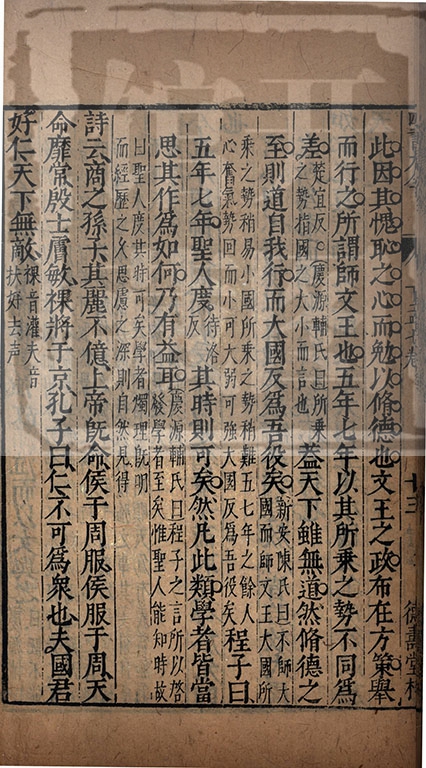 此因其愧恥之心而勉以脩德也文王之政布在方策舉
而行之所謂師文王也五年七年以其所乘之勢不同為
差楚宜反○慶源輔氏曰所乘之勢指國之大小而言也蓋天下雖無道然脩德之
至則道自我行而大國反為吾役矣新安陳氏曰不師大國而師文王大國所
乘之勢稍易小國所乘之勢稍難五七年之餘人心奮氣勢回而小可大弱可強大國反為吾役矣程子曰
五年七年聖人度待洛反其時則可矣然凡此類學者皆當
思其作為如何乃有益耳慶源輔氏曰程子之言所以啓發學者至矣惟聖人能知時故
曰聖人度其時可矣學者燭理既明而經歷之久思慮之深則自然見得
詩云商之孫子其麗不億上帝既命侯于周服侯服于周天
命靡常殷士膚敏祼將于京孔子曰仁不可為衆也夫國君
好仁天下無敵祼音灌夫音扶好去聲
十三
德壽堂梓